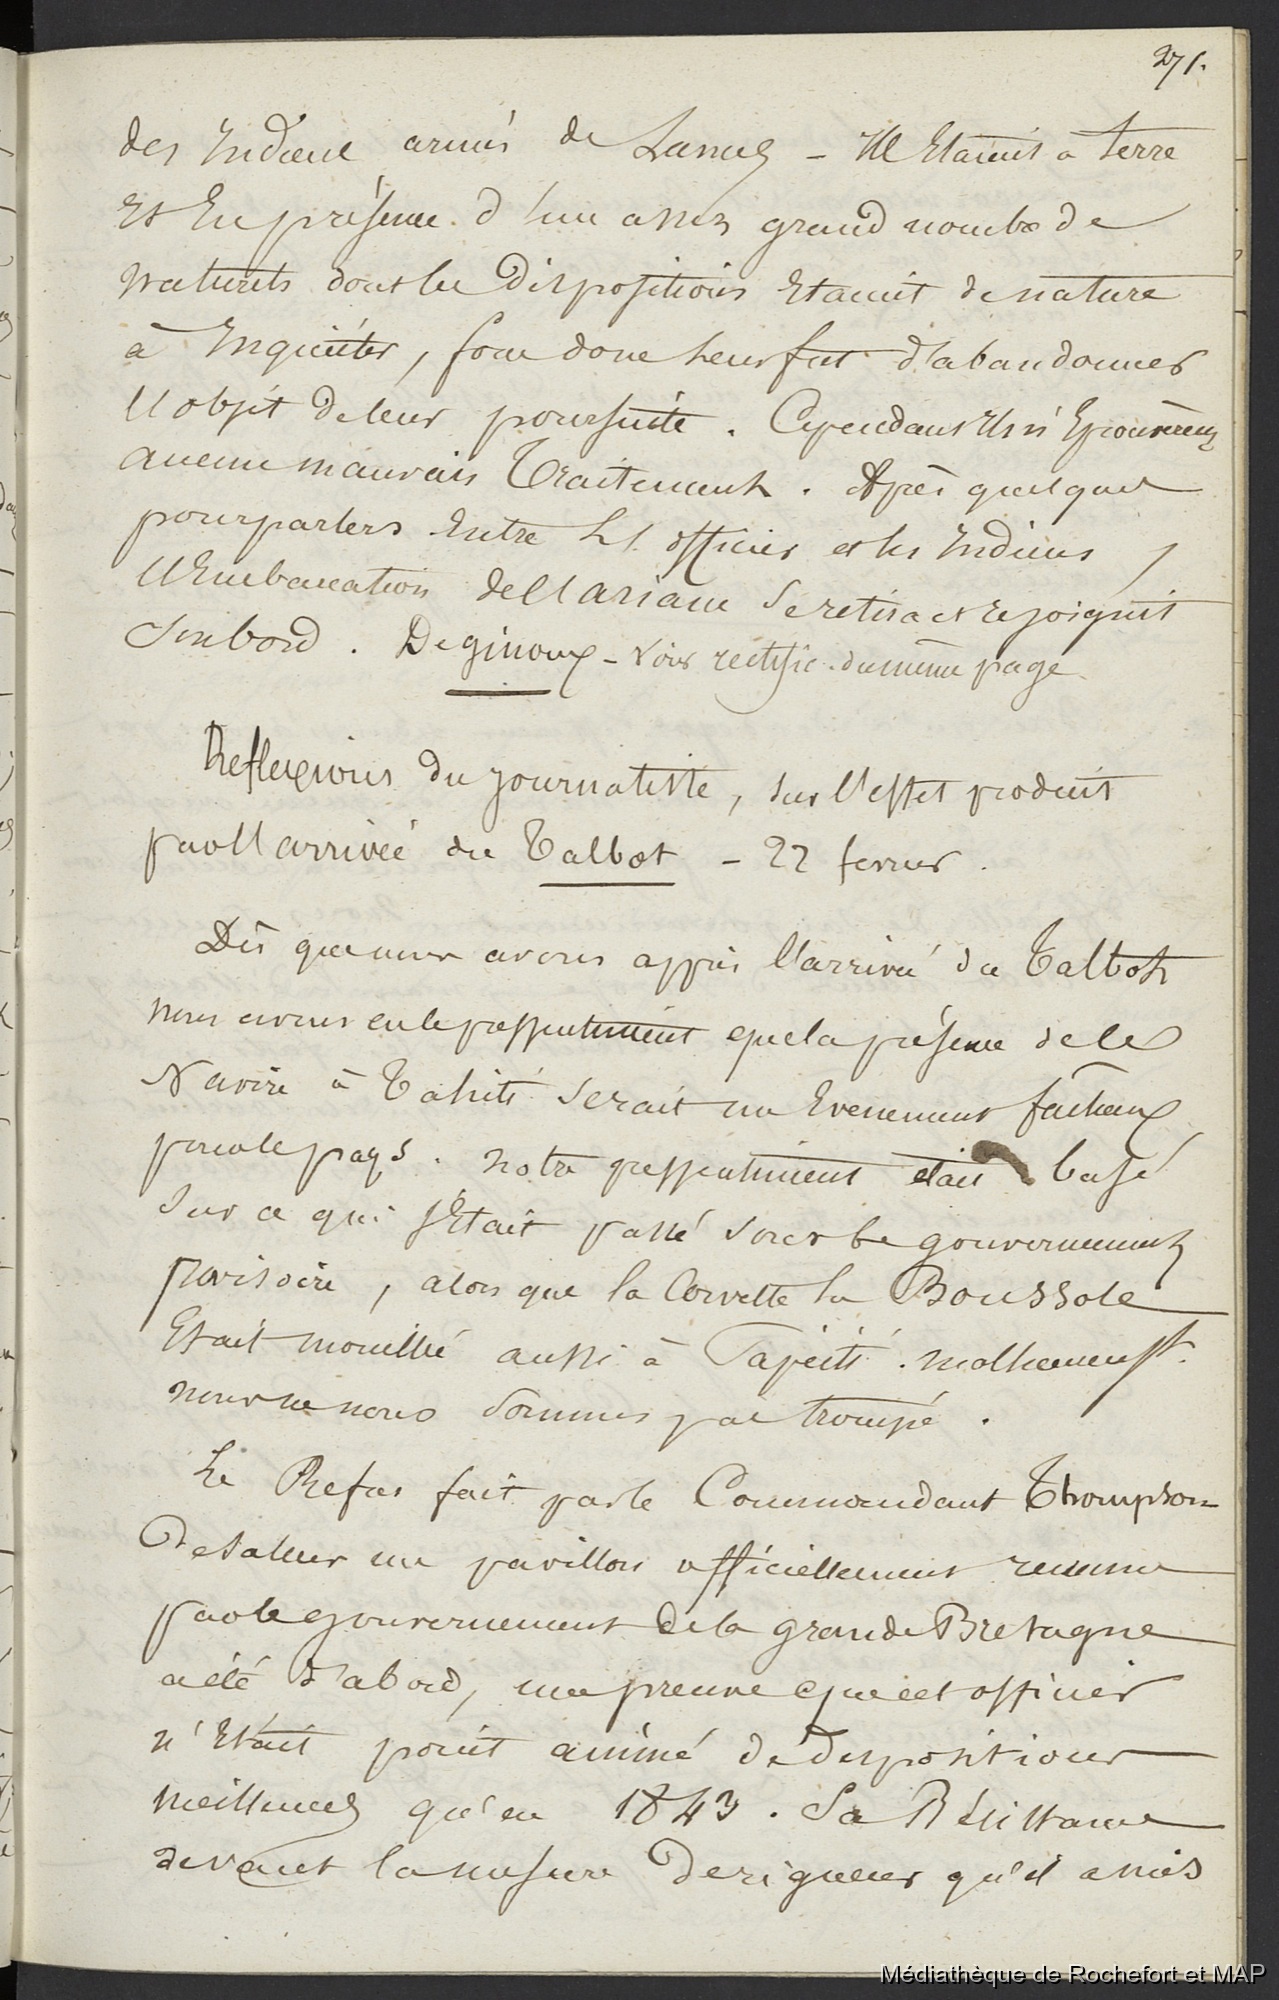 271.
des Indiens armés de Lances _ Ils Etaient à terre
Et En présence d'une assez grand nombre de
Naturels dont les Dispositions Etaient de nature
à Inquiéter, force donc leur fut d'abandonner
l'objet de leur poursuite. Cependant Ils n'Eprouvèrent
aucun mauvais Traitement. Après quelques
pourparlers Entre Les officiers et les Indiens,
l'Embarcation de l'Ariane Se retira et rejoignit
Son bord. Deginoux _ Voir rectific. du même page
Reflexions du journaliste, sur l'effet produit
par l'arrivée du Talbot _ 22 fevrier.
Dès que nous avons appris l'arrivée du Talbot
nous avons eu le pressentiment que la présence de ce
Navire à Tahiti Serait un Evenement fâcheux
pour le pays. notre pressentiment était basé
Sur ce qui s'Etait passé sous le gouvernement
provisoire, alors que la Corvette la Boussole
Etait mouillée aussi à Papeiti. malheureust.
nous ne nous Sommes pas trompé.
Le Refus fait par le Commandant Thompson
De saluer un pavillon officiellement reconnu
par le gouvernement de la grande Bretagne
a été d'abord, une preuve que cet officier
n'Etait point animé de dispositions
meilleures qu'en 1843. Sa Résistance
devant la mesure De rigueur qu'il a mis
Médiathèque de Rochefort et MAP